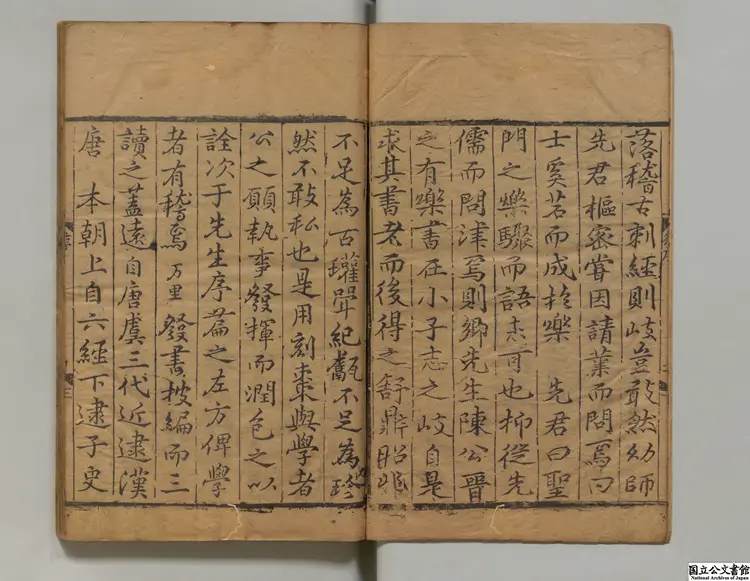 落稽古刺經則岐豈敢然幼師
先君樞密嘗因請業而問焉曰
士奚若而成於樂 先君曰聖
門之樂驟而語未可也抑從先
儒而問津焉則鄉先生陳公晉
之有樂書在小子志之岐自是
求其書老而後得之舒鼎昭兆
不足為古瓘斝紀甗不足為珍
然不敢私也是用刻棗與學者
公之願執事發揮而潤色之以
詮次于先生序篇之左方俾學
者有稽焉萬里發書披編而三
讀之蓋遠自唐虞三代近逮漢
唐 本朝上自六經下逮子史
三
国立公文書館
National Archives of Japan